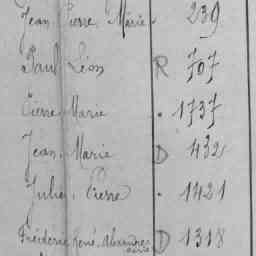 Jean Pierre Marie. 239
Paul Léon R 707
Pierre Marie . 1737
Jean Marie D 432
Jules Pierre . 1421
Frédéric René Alexandre D 1318